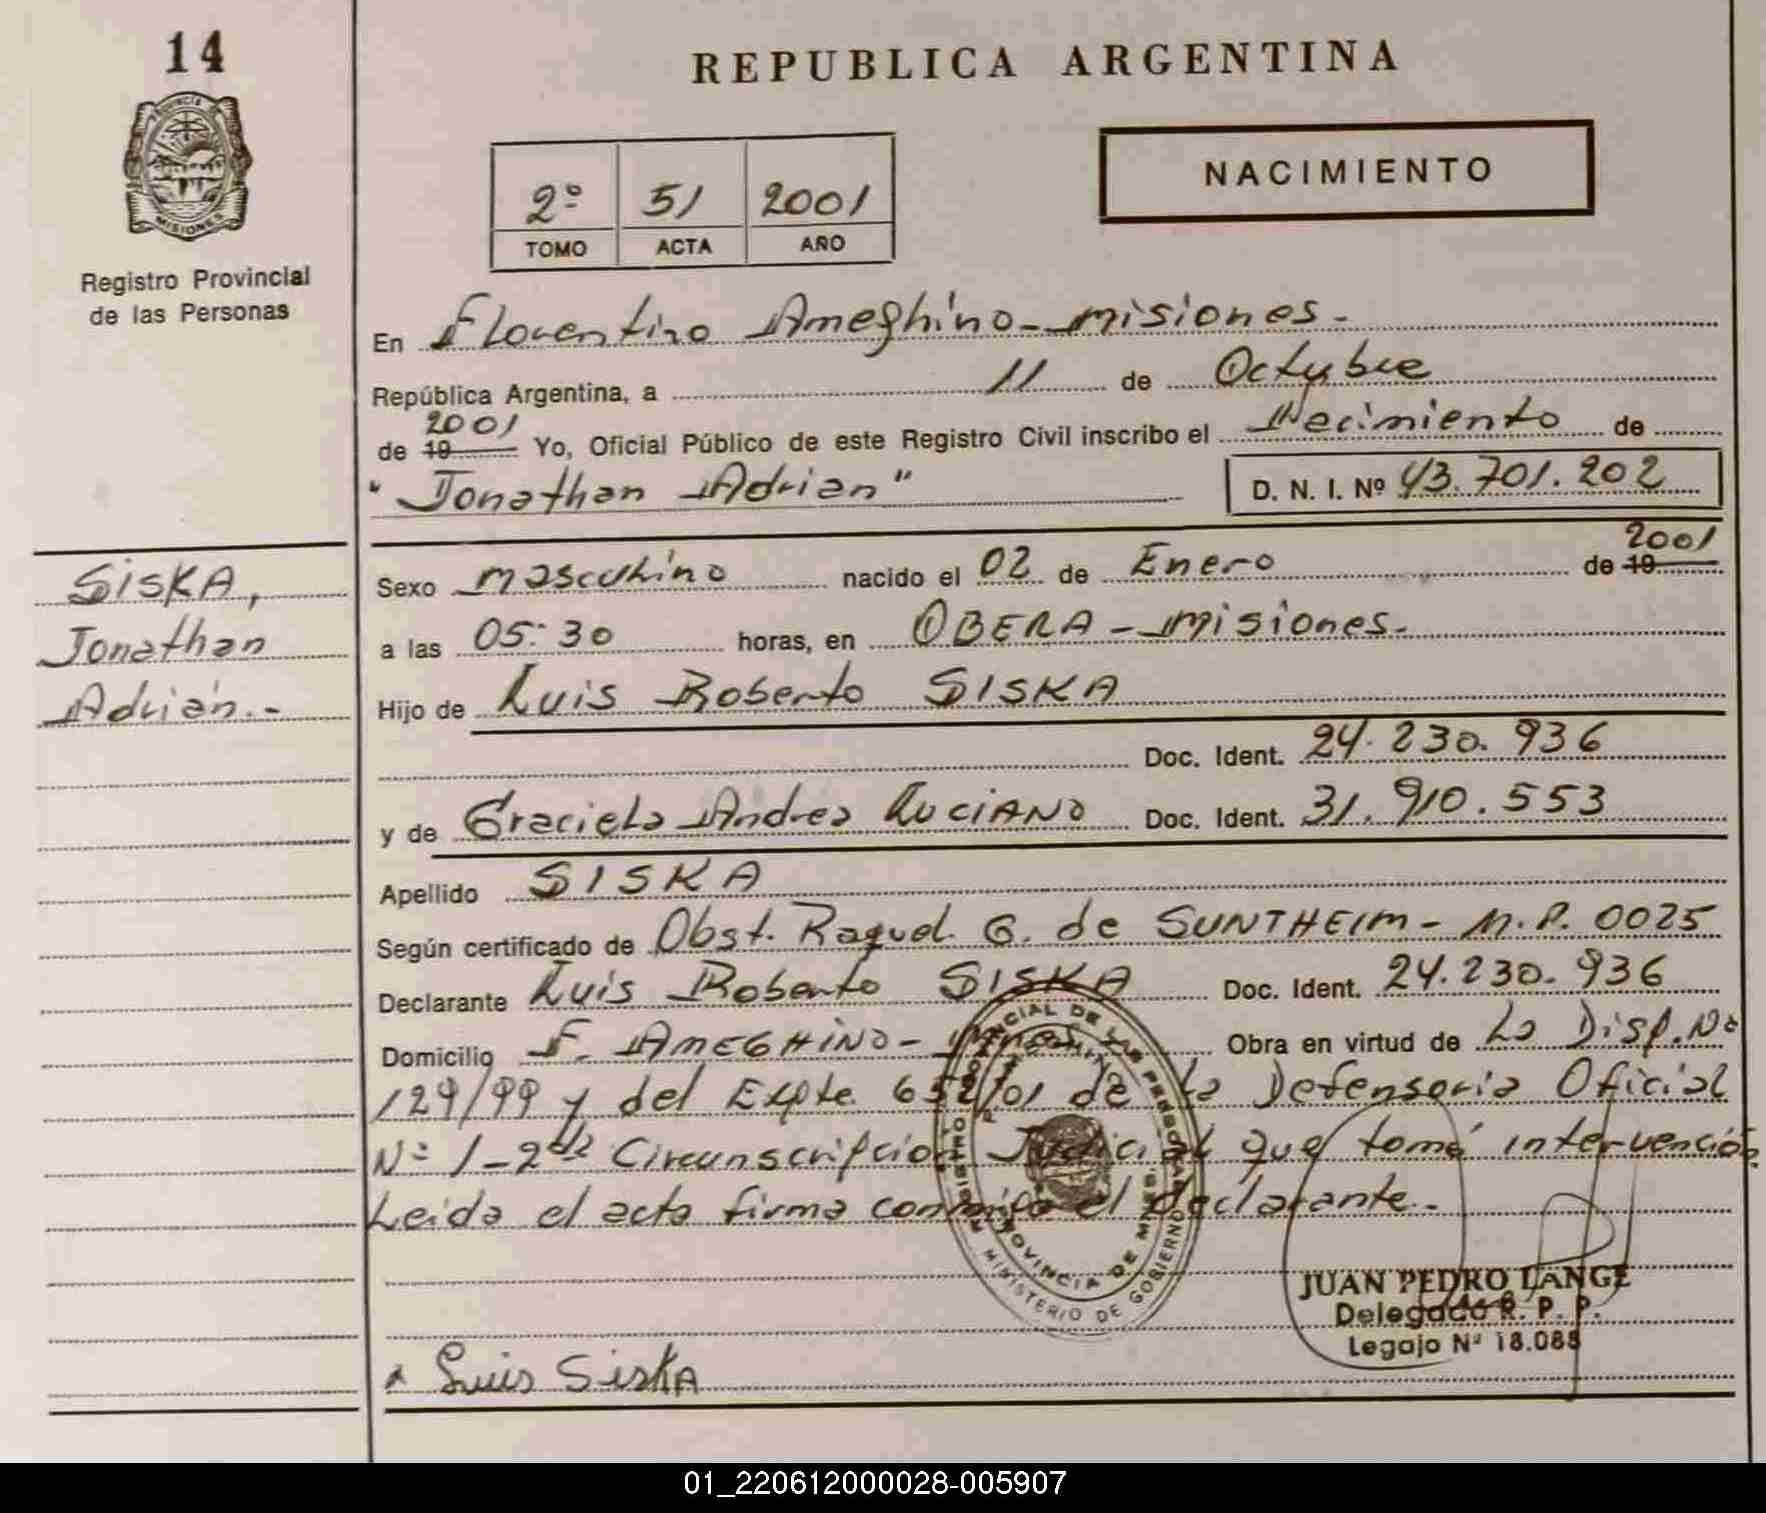 14
PROVINCIA DE
MISIONES
Registro Provincial
de las Personas
REPUBLICA ARGENTINA
2º 51 2001
TOMO ACTA AÑO
NACIMIENTO
En Florentino Ameghino - misiones.-
República Argentina, a 11 de Octubre
2001
de 19 Yo, Oficial Público de este Registro Civil inscribo el Nacimiento de
"Jonathan Adrian" D. N. I. Nº 43.701.202
SISKA,
Jonathan
Adrián.-
2001
Sexo masculino nacido el 02 de Enero de 19
a las 05:30 horas, en OBERA - misiones.-
Hijo de Luis Roberto SISKA
Doc. Ident. 24.230.936
y de Graciela Andrea LUCIANO Doc. Ident. 31.910.553
Apellido SISKA
Según certificado de Obst. Raquel G. de SUNTHEIM - M.P. 0025
Declarante Luis Roberto SISKA Doc. Ident. 24.230.936
Domicilio F. AMEGHINO - Obra en virtud de La Disp. Nº
129/99 y del Expte 652/01 de la Defensoria Oficial
Nº 1 - 2da Circunscripción Judicial que tomó intervención
Leida el acta firma conmigo el declarante.-
PROVINCIA DE MNES.
MINISTERIO DE GOBIERNO
JUAN PEDRO LANGE
Delegado R. P. P.
Legajo Nº 18.088
Luis Siska
01_220612000028-005907